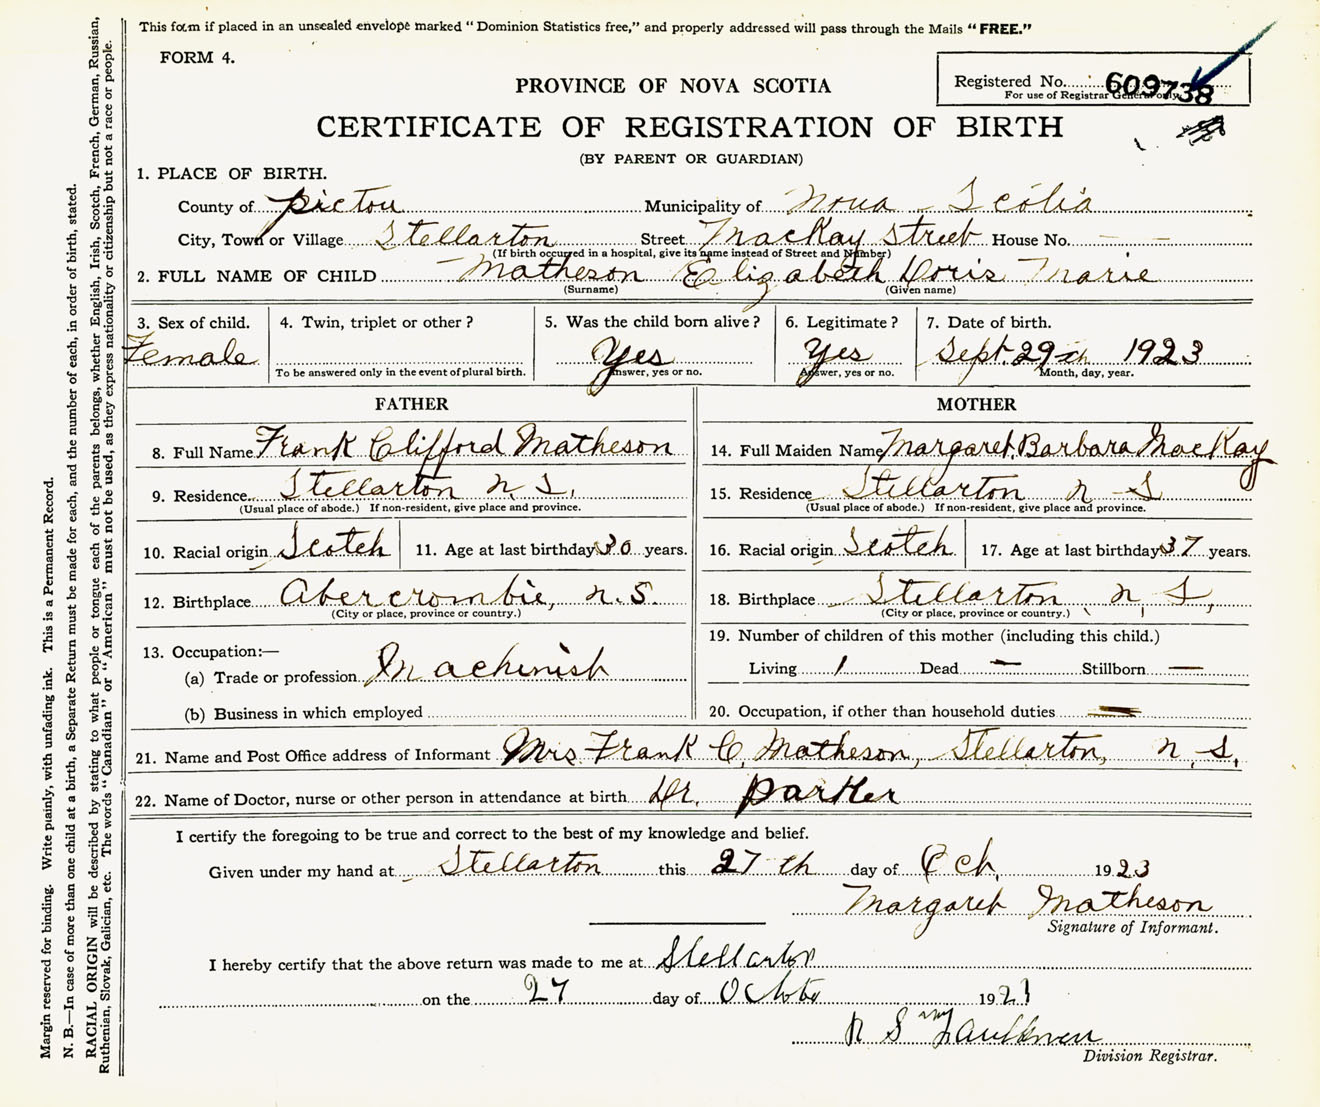 This form if placed in an unsealed envelope marked "Dominion Statistics free," and properly addressed will pass through the Mails "FREE."
FORM 4.
PROVINCE OF NOVA SCOTIA
Registered No. 609738
For use of Registrar General only.
CERTIFICATE OF REGISTRATION OF BIRTH
(BY PARENT OR GUARDIAN)
1. PLACE OF BIRTH.
County of Pictou Municipality of Nova Scotia
City, Town or Village Stellarton Street MacKay Street House No. — —
(If birth occurred in a hospital, give its name instead of Street and Number)
2. FULL NAME OF CHILD Matheson Elizabeth Doris Marie
(Surname) (Given name)
3. Sex of child. 4. Twin, triplet or other? 5. Was the child born alive? 6. Legitimate? 7. Date of birth.
Female Yes Yes Sept. 29th 1923
To be answered only in the event of plural birth. Answer, yes or no. Answer, yes or no. Month, day, year.
FATHER MOTHER
8. Full Name Frank Clifford Matheson 14. Full Maiden Name Margaret Barbara MacKay
9. Residence Stellarton N.S. 15. Residence Stellarton N S
(Usual place of abode.) If non-resident, give place and province. (Usual place of abode.) If non-resident, give place and province.
10. Racial origin Scotch 11. Age at last birthday 30 years. 16. Racial origin Scotch 17. Age at last birthday 37 years.
12. Birthplace Abercrombie, N.S. 18. Birthplace Stellarton, N.S.
(City or place, province or country.) (City or place, province or country.)
19. Number of children of this mother (including this child.)
13. Occupation:—
(a) Trade or profession Machinist Living 1 Dead — Stillborn —
(b) Business in which employed 20. Occupation, if other than household duties —
21. Name and Post Office address of Informant Mrs Frank C. Matheson, Stellarton, N.S.
22. Name of Doctor, nurse or other person in attendance at birth Dr. Parker
I certify the foregoing to be true and correct to the best of my knowledge and belief.
Given under my hand at Stellarton this 27th day of Oct. 1923
Margaret Matheson
Signature of Informant.
I hereby certify that the above return was made to me at Stellarton
on the 27 day of October 192
R S
Division Registrar.
Margin reserved for binding. Write plainly, with unfading ink. This is a Permanent Record.
N. B.—In case of more than one child at a birth, a Separate Return must be made for each, and the number of each, in order of birth, stated.
RACIAL ORIGIN will be described by stating to what people or tongue each of the parents belongs, whether English, Irish, Scotch, French, German, Russian,
Ruthenian, Slovak, Galician, etc. The words "Canadian" or "American" must not be used, as they express nationality or citizenship but not a race or people.